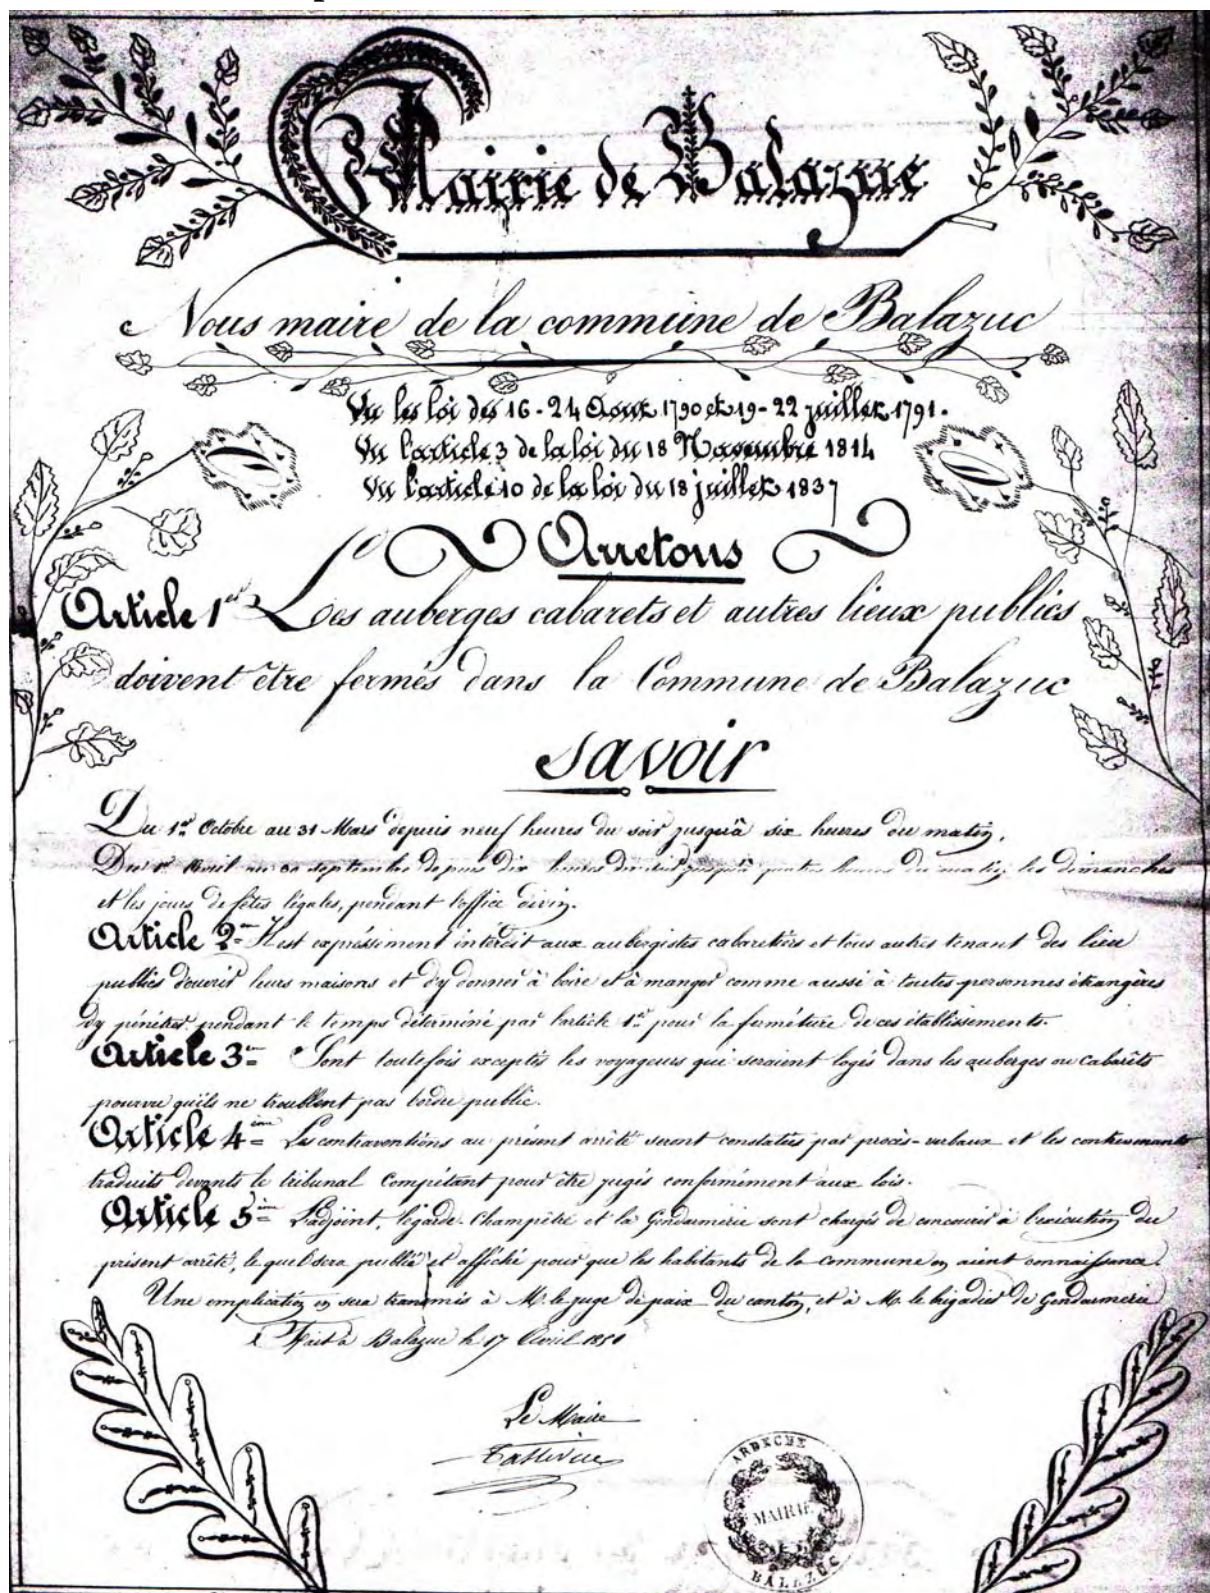 Mairie de Balazuc
Nous maire de la commune de Balazuc
Vu les loi des 16-24 Aout 1790 et 19-22 juillet 1791.
Vu l'article 3 de la loi du 18 Novembre 1814
Vu l'article 10 de la loi du 18 juillet 1837
Arretons
Article 1er Les auberges cabarets et autres lieux publics
doivent être fermés dans la Commune de Balazuc
Savoir
Du 1er Octobre au 31 Mars depuis neuf heures du soir jusqu'à six heures du matin.
Du 1er Avril au 30 septembre depuis dix heures du soir jusqu'à quatre heures du matin, les dimanches
et les jours de fêtes légales, pendant l'office divin.
Article 2me Il est expréssiment interdit aux aubergistes cabaretiers et tous autres tenant des lieu
publics d'ouvrir leurs maisons et d'y donner à boire et à manger comme aussi à toutes personnes étrangères
d'y pénétrer pendant le temps déterminé par l'article 1er pour la furméture de ces établissements.
Article 3me Sont toutefois exceptés les voyageurs qui seraient logés dans les auberges ou cabarêts
pourvu qu'ils ne troublent pas l'ordre public.
Article 4ème Les contraventions au présent arrêté seront constatées par procès-verbaux et les contrevenants
traduits devants le tribunal compétant pour être jugés conformément aux lois.
Article 5ème L'adjoint, le garde-Champêtre et la Gendarmerie sont chargés de concourir à l'exécution du
présent arrêté, le quel sera publié et affiché pour que les habitants de la commune en aient connaissance.
Une emplication en sera transmis à M. le juge de paix du canton, et à M. le brigadier de Gendarmerie
Fait à Balazuc le 17 Avril 1851
Le Maire
Tastevin
ARDECHE
MAIRIE
BALAZUC